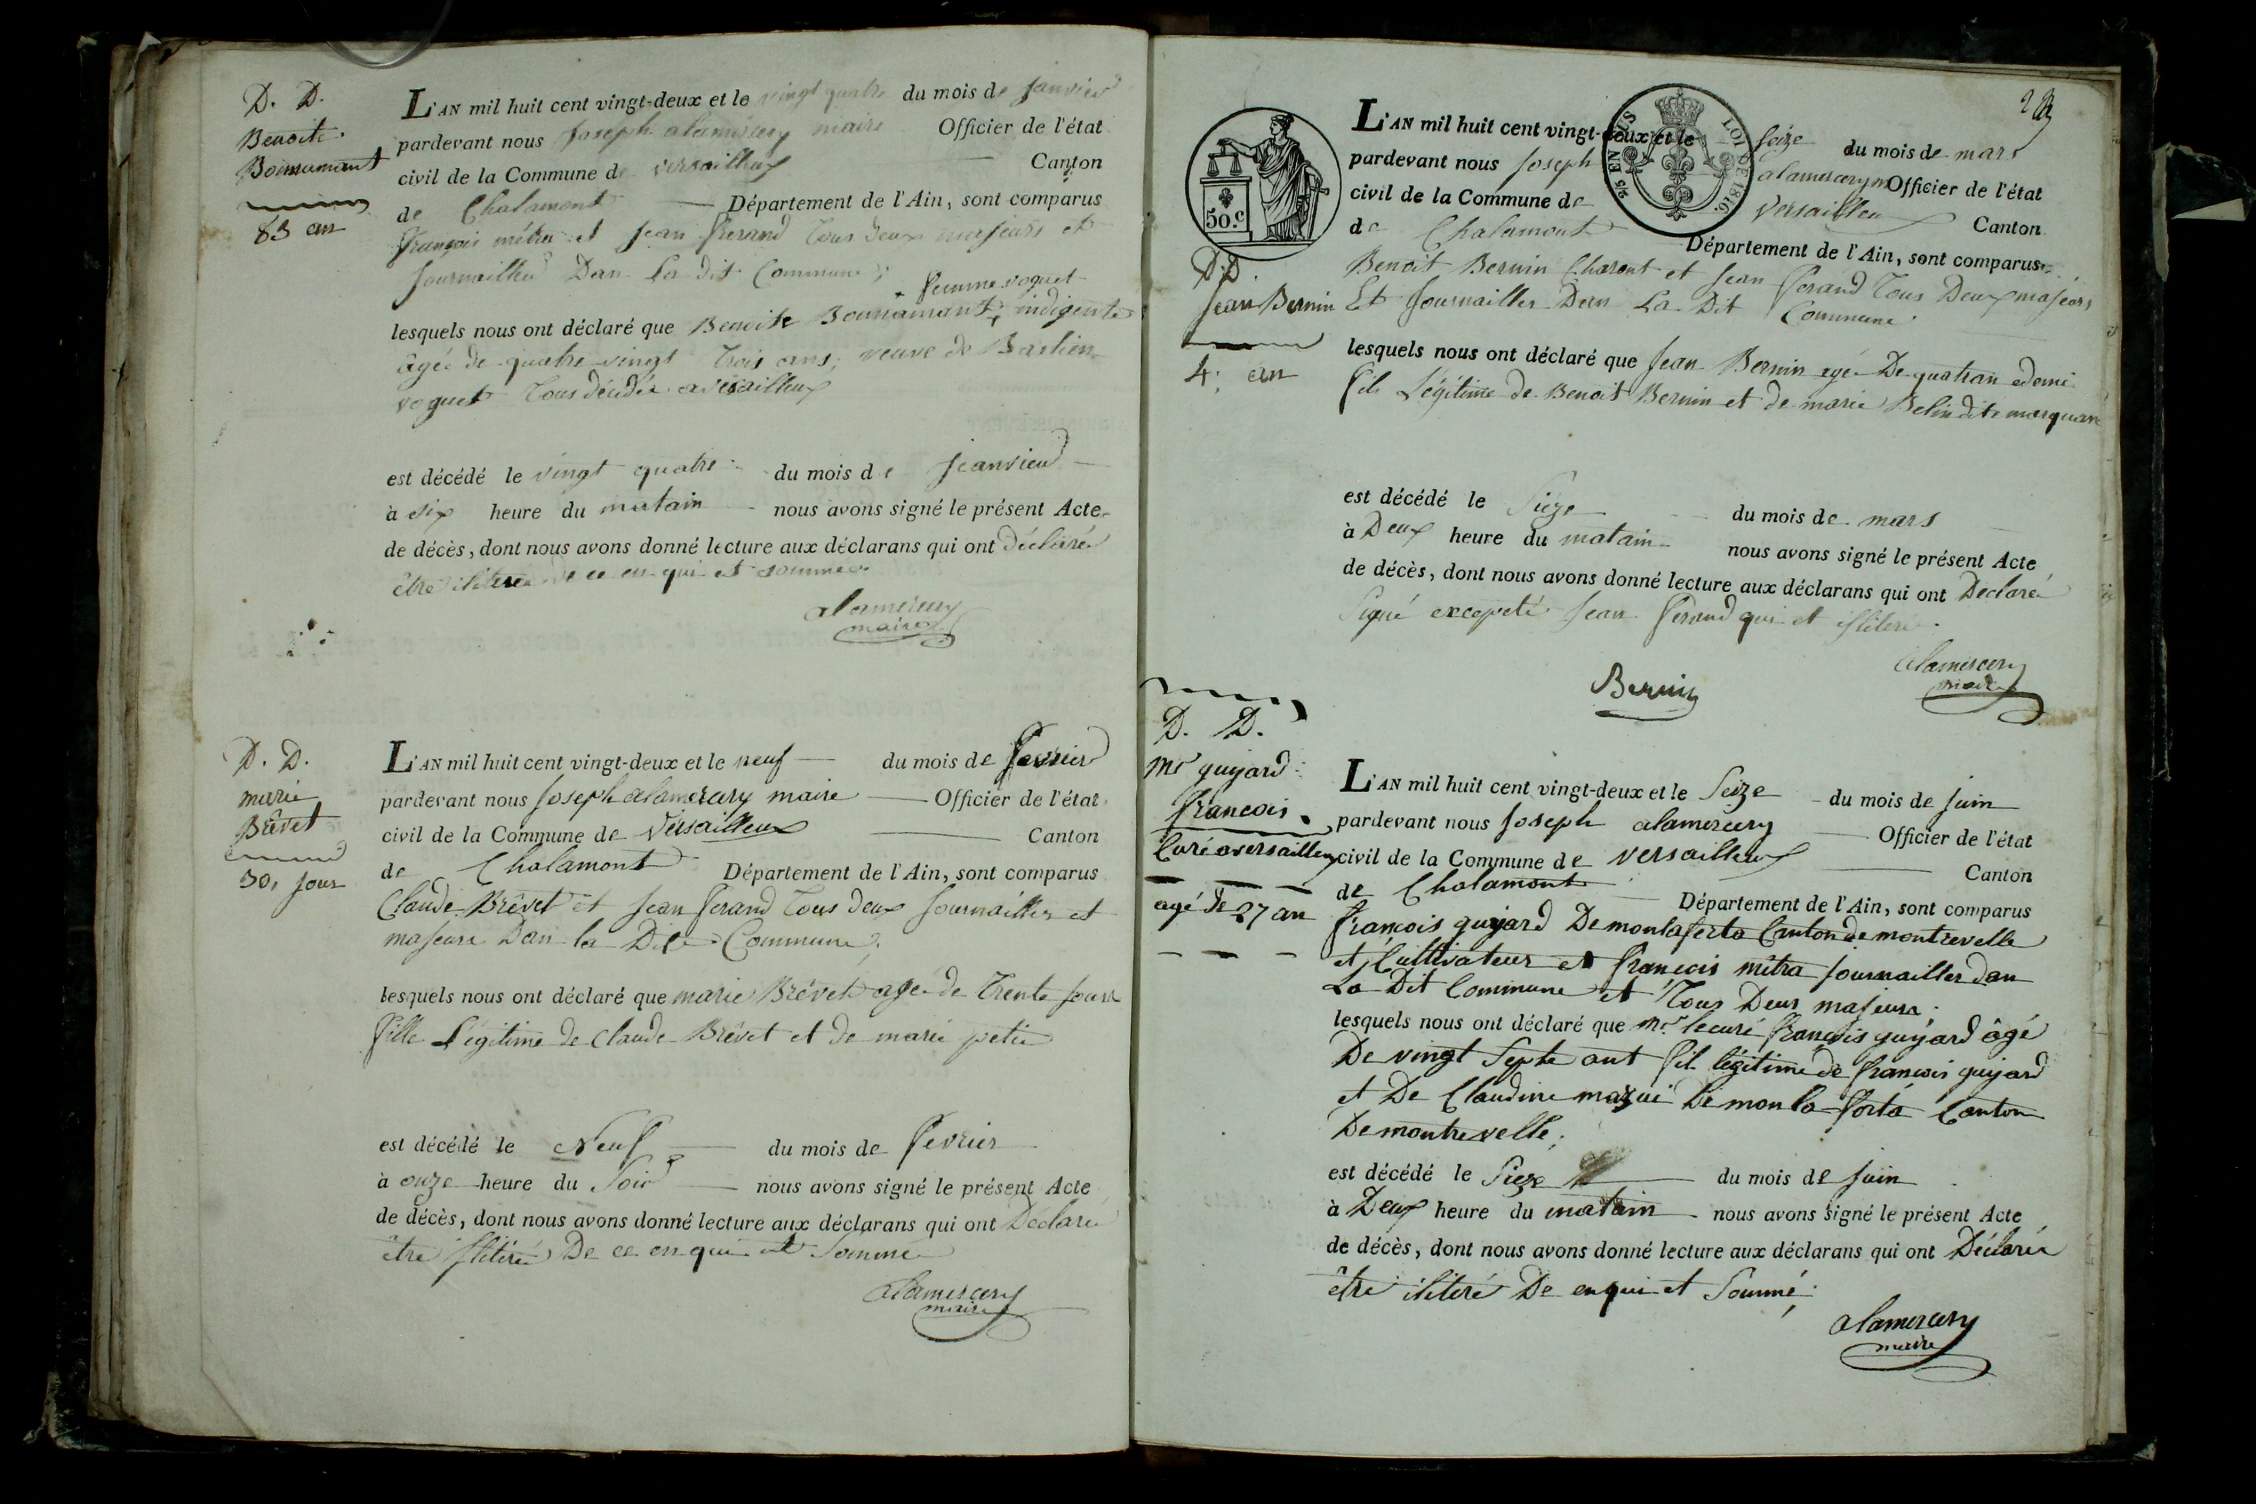 D. D.
Benoite
Bonnamant
83 an
L'AN mil huit cent vingt-deux et le vingt quatre du mois de Janvier
pardevant nous Joseph alamercery maire Officier de l'état
civil de la Commune de versailleux Canton
de Chalamont Département de l'Ain, sont comparus
françois métra et Jean ferand Tous deux majeurs et
Journaillier Dan la dit Commune;
femme voguet
lesquels nous ont déclaré que Benoite Bonnamant indigente
âgée de quatre vingt Trois ans, veuve de Bastien
voguet Tous deux de a versailleux
est décédé le vingt quatre du mois de Jeanvier
à six heure du matain nous avons signé le présent Acte
de décès, dont nous avons donné lecture aux déclarans qui ont Déclaré
être iliteré de ce en qui et sommé
alamercery
maire
D. D.
marie
Brêvet
30, Jour
L'AN mil huit cent vingt-deux et le neuf du mois de fevrier
pardevant nous Joseph alamercery maire Officier de l'état
civil de la Commune de Versailleux Canton
de Chalamont Département de l'Ain, sont comparus
Claude Brêvet et Jean ferand Tous deux Journaillier et
majeure Dan la Dite Commune;
lesquels nous ont déclaré que marie Brêvet agé de Trente Jours
fille Légitime de Claude Brêvet et de marie petit
est décédé le Neuf du mois de fevrier
à onze heure du Soir nous avons signé le présent Acte
de décès, dont nous avons donné lecture aux déclarans qui ont Déclaré
être iliteré De ce en qui et Sommé
alamercery
maire
23
50.c
25 EN SUS
LOI DE 1816.
L'AN mil huit cent vingt-deux et le Seize du mois de mars
pardevant nous Joseph alamercery m Officier de l'état
civil de la Commune de Versailleux Canton
de Chalamont Département de l'Ain, sont comparus
D. D.
Jean Bernin
4; an
Benoit Bernin Charont et Jean ferand Tous Deux majeurs
Et Journaillier Dan La Dit Commune
lesquels nous ont déclaré que Jean Bernin agé De quatran edemi
fils Légitime de Benoit Bernin et de marie Belin dite marquand
est décédé le Sieze du mois de mars
à Deux heure du matain nous avons signé le présent Acte
de décès, dont nous avons donné lecture aux déclarans qui ont Declaré
Signé excepeté Jean ferand qui et iliteré
Bernin
alamercery
maire
D. D.
Mr guyard
françois
Curé a versailleux
agé de 27 an
L'AN mil huit cent vingt-deux et le Seize du mois de Juin
pardevant nous Joseph alamercery Officier de l'état
civil de la Commune de Versailleux Canton
de Chalamont Département de l'Ain, sont comparus
françois guyard De monlaferta Canton de montrevelle
et Cultivateur et françois métra Journaillier dan
La Dit Commune et Tous Deux majeurs;
lesquels nous ont déclaré que Mr lecuré françois guyard âgé
De vingt Septe ant fil légitime de françois guyard
et De Claudine mazui De monla forta Canton
De montrevelle;
est décédé le Sieze du mois de Juin
à Deux heure du matain nous avons signé le présent Acte
de décès, dont nous avons donné lecture aux déclarans qui ont Déclaré
être iliteré De en qui et Sommé
alamercery
maire